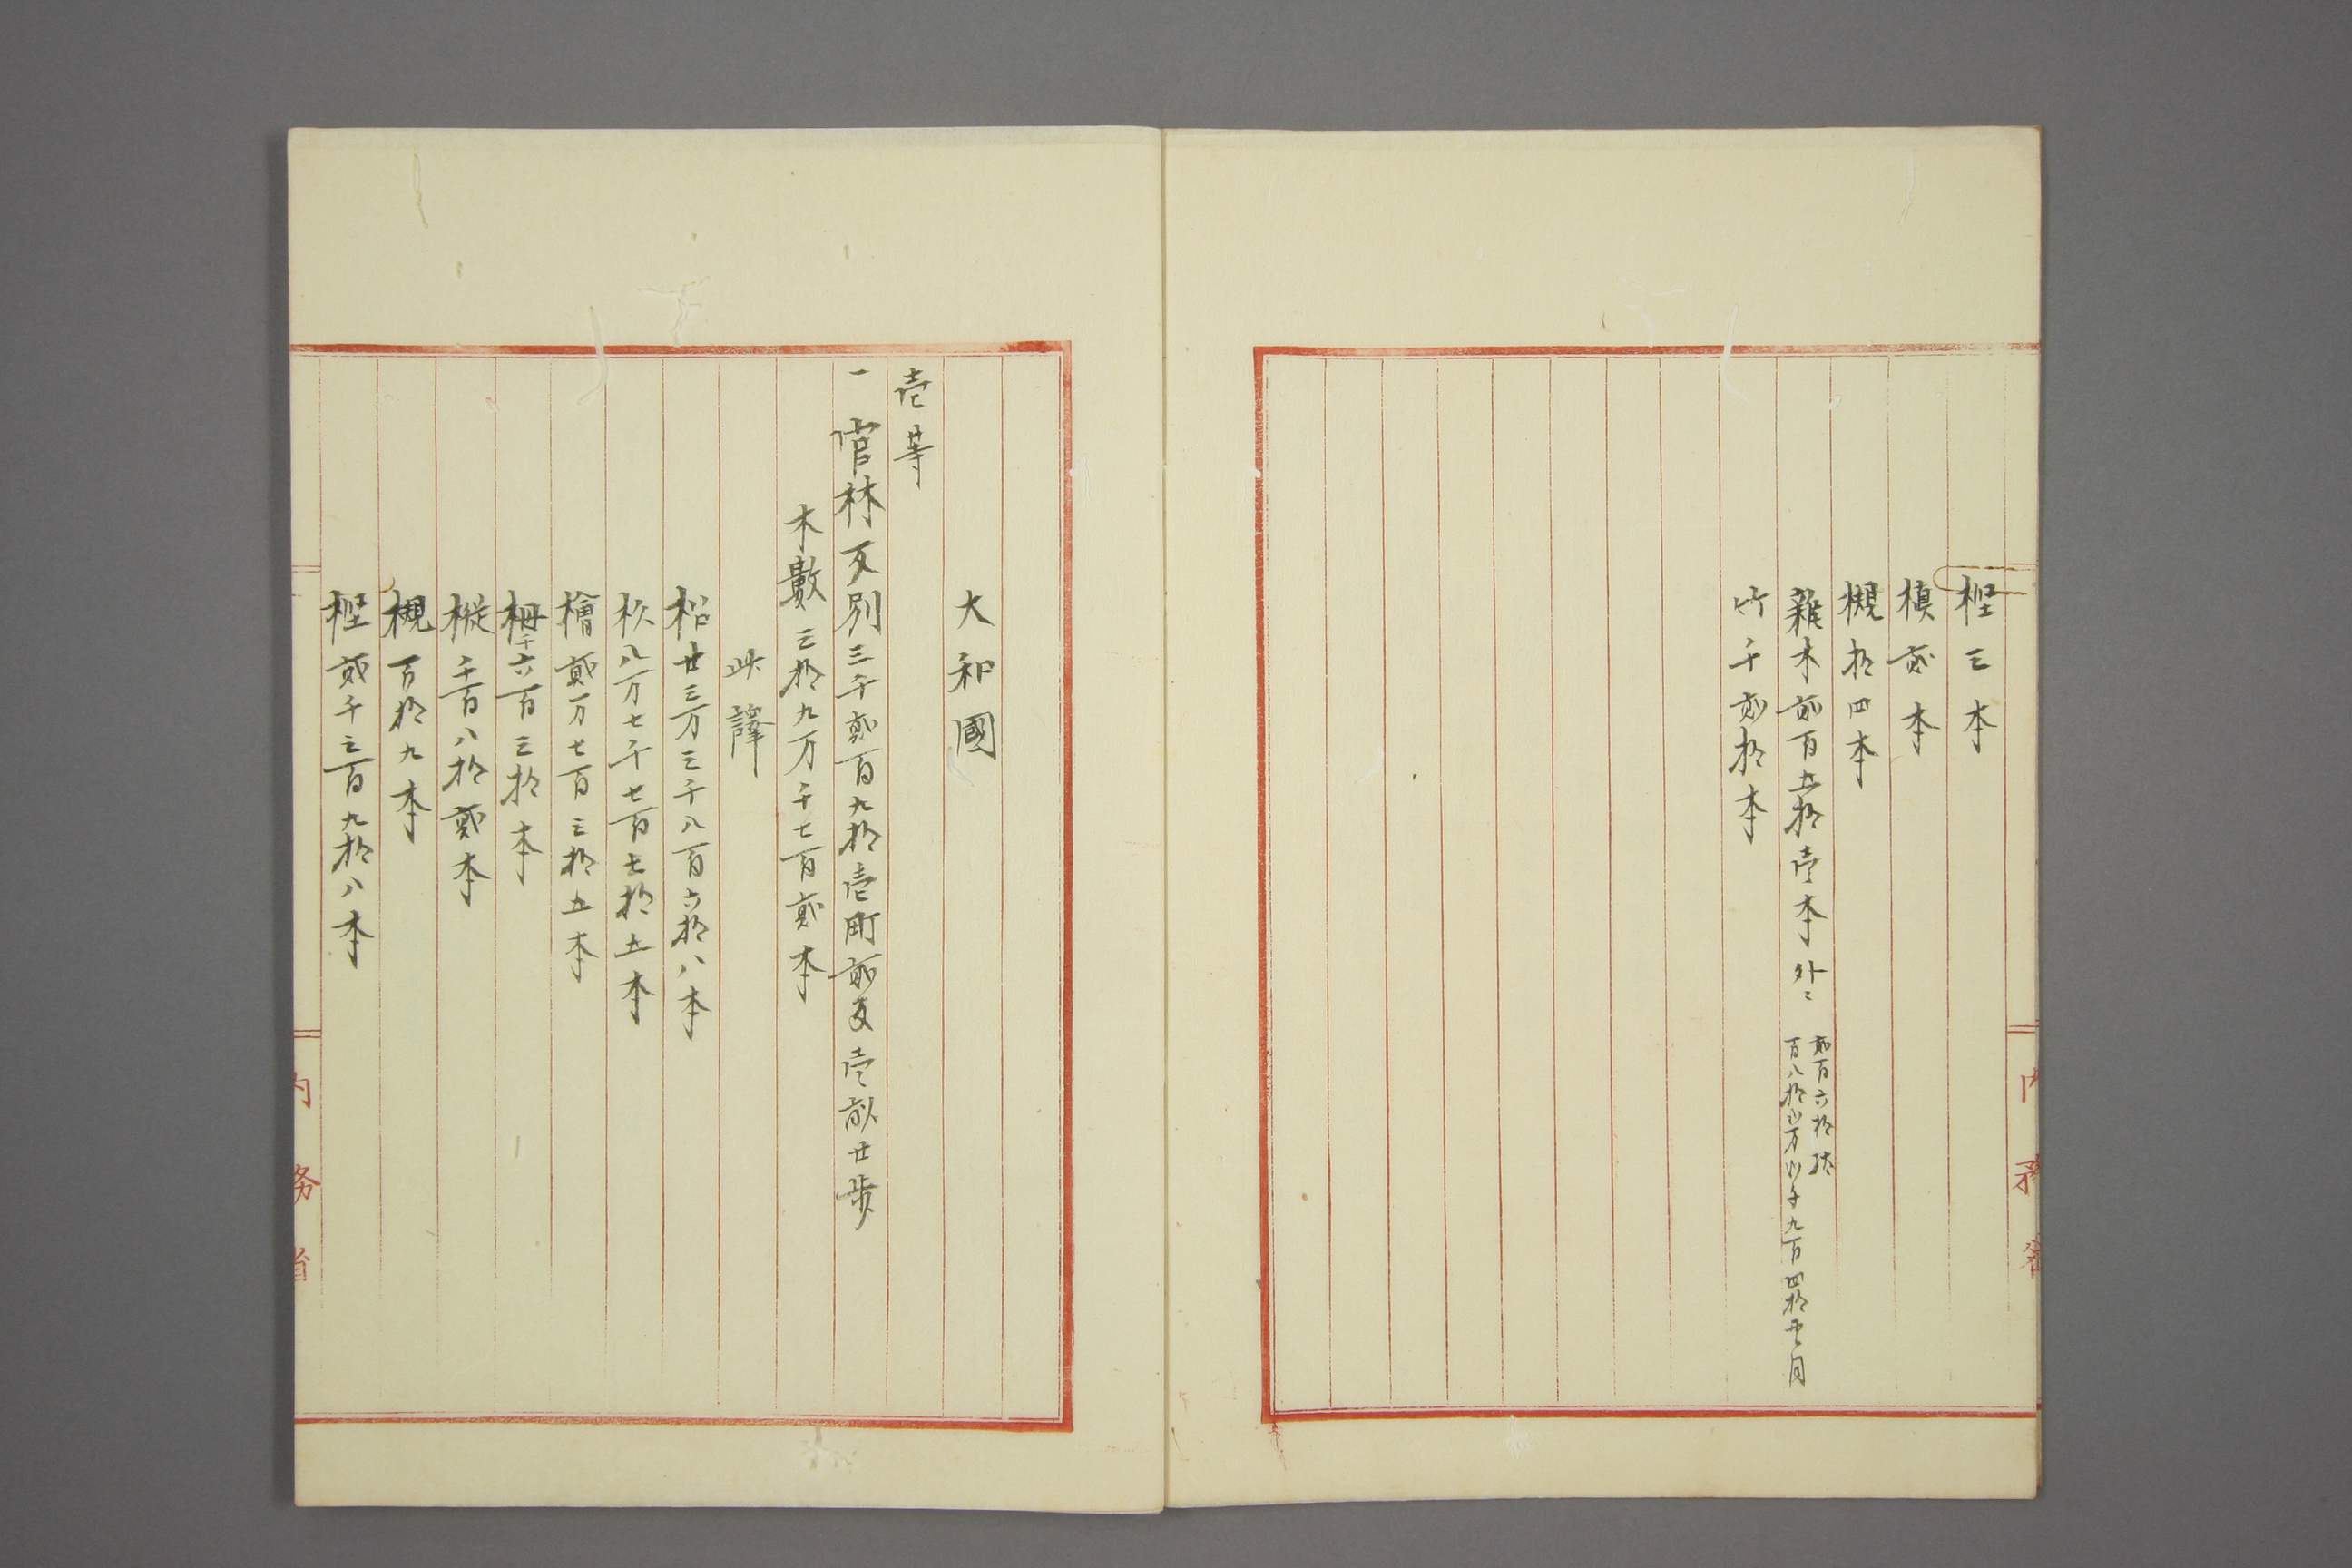 樫三本
槙貳本
槻拾四本
雜木貳百五拾壱本 外ニ
貳百六拾
百八拾 万 千九百四拾
竹千貳拾本
内務省
大和國
壱等
一 官林反別三千貳百九拾壱町貳反壱畝廿歩
木數三拾九万千七百貳本
此譯
松廿三万三千八百六拾八本
杉八万七千七百七拾五本
檜貳万七百三拾五本
栂千六百三拾本
樅千百八拾貳本
槻百拾九本
樫貳千三百九拾八本
内务省